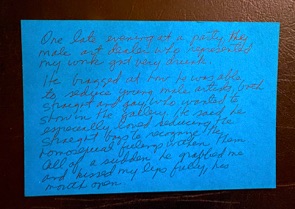 One late evening at a party, the
male art dealer who represented
my work got very drunk.
He bragged at how he was able
to seduce young male artists, both
straight and gay, who wanted to
show in the gallery. He said he
especially loved seducing
straight boys to recognize the
homosexual feelings within them.
All of a sudden he grabbed me
and kissed my lips fully, his
mouth open.